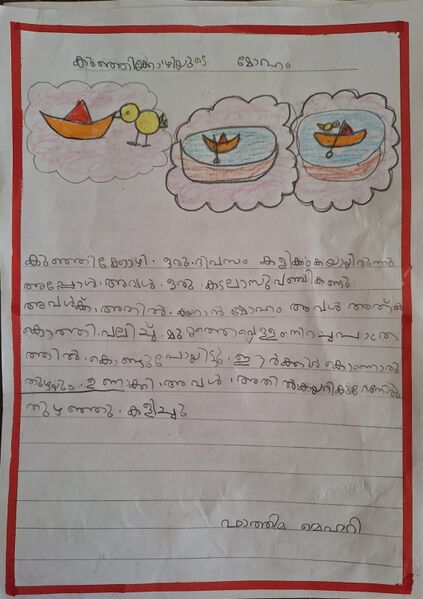 കുഞ്ഞിക്കോഴിയുടെ മോഹം
കുഞ്ഞിക്കോഴി. ഒരു ദിവസം കളിക്കുകയായിരുന്നു
അപ്പോൾ. അവൾ. ഒരു. കടലാസുവഞ്ചികണ്ടു
അവൾക്ക്. അതിൽ. കയറാൻ മോഹം അവൾ അത്
കൊത്തി. വലിച്ച്. മുറ്റത്തെവെള്ളംനിറച്ചപാത്ര
ത്തിൽ. കൊണ്ടുപോയിട്ടു. ഈർക്കിൽ കൊണ്ടൊരു
തുഴയും. ഉണ്ടാക്കി. അവൾ. അതിൽകയറി
തുഴഞ്ഞു. കളിച്ചു
ഫാത്തിമ മെഹറി